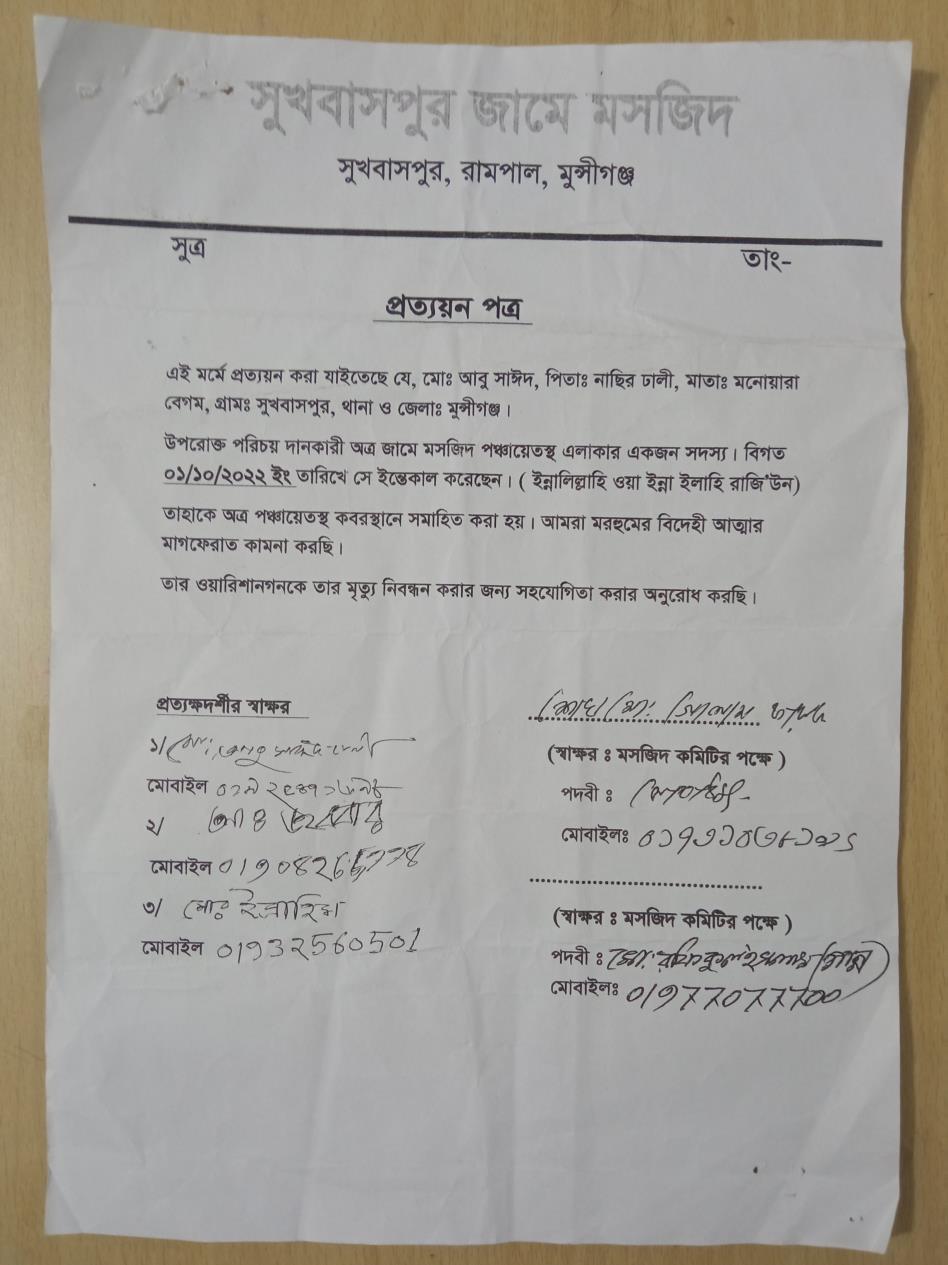 সুখবাসপুর জামে মসজিদ
সুখবাসপুর, রামপাল, মুন্সীগঞ্জ
সুত্র
তাং-
প্রত্যয়ন পত্র
এই মর্মে প্রত্যয়ন করা যাইতেছে যে, মোঃ আবু সাঈদ, পিতাঃ নাছির ঢালী, মাতাঃ মনোয়ারা
বেগম, গ্রামঃ সুখবাসপুর, থানা ও জেলাঃ মুন্সীগঞ্জ।
উপরোক্ত পরিচয় দানকারী অত্র জামে মসজিদ পঞ্চায়েতস্থ এলাকার একজন সদস্য। বিগত
০১/১০/২০২২ ইং তারিখে সে ইন্তেকাল করেছেন। ( ইন্নালিল্লাহি ওয়া ইন্না ইলাহি রাজি'উন)
তাহাকে অত্র পঞ্চায়েতস্থ কবরস্থানে সমাহিত করা হয়। আমরা মরহুমের বিদেহী আত্মার
মাগফেরাত কামনা করছি।
তার ওয়ারিশানগনকে তার মৃত্যু নিবন্ধন করার জন্য সহযোগিতা করার অনুরোধ করছি।
প্রত্যক্ষদর্শীর স্বাক্ষর
১/
মোবাইল
২/
মোবাইল
৩/
মোবাইল 01932560501
(স্বাক্ষর : মসজিদ কমিটির পক্ষে )
পদবী :
মোবাইলঃ
(স্বাক্ষর : মসজিদ কমিটির পক্ষে )
পদবী : মোঃ রফিকুল ইসলাম
মোবাইলঃ 01977077700